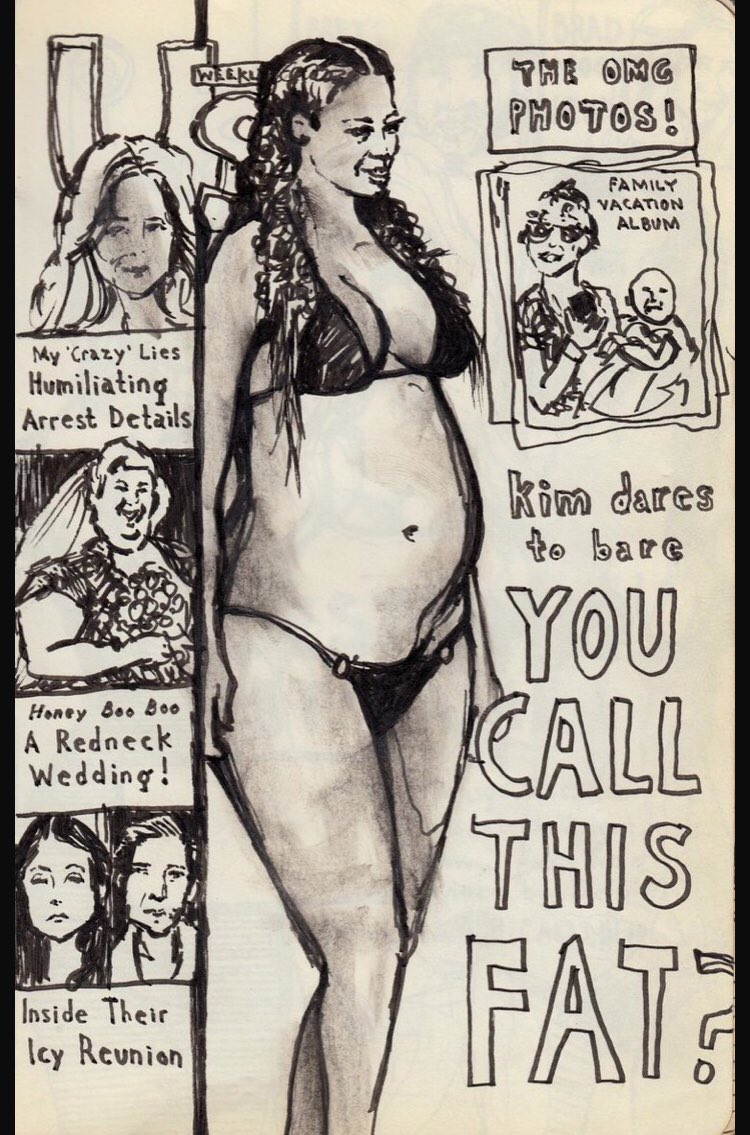 US
WEEKL
My 'Crazy' Lies
Humiliating
Arrest Details
Honey Boo Boo
A Redneck
Wedding!
Inside Their
Icy Reunion
THE OMG
PHOTOS!
FAMILY
VACATION
ALBUM
kim dares
to bare
YOU
CALL
THIS
FAT?